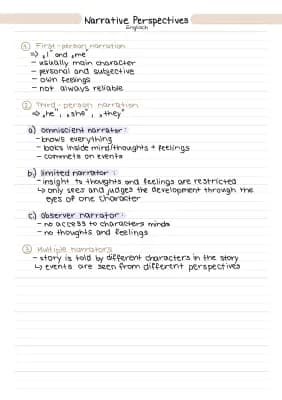 Narrative Perspectives
Englisch
① First-person narration
⇒ „I" and „me"
- usually main character
- personal and subjective
- own feelings
- not always reliable
② Third-person narration
⇒ „he", „she", „they"
a) omniscient narrator:
- knows everything
- looks inside mind/thoughts + feelings
- commets on events
b) limited narrator:
- insight to thoughts and feelings are restricted
↳ only sees and judges the development through the
eyes of one character
c) observer narrator:
- no access to characters minds
- no thoughts and feelings
③ Multiple narrators
- story is told by different characters in the story
↳ events are seen from different perspectives